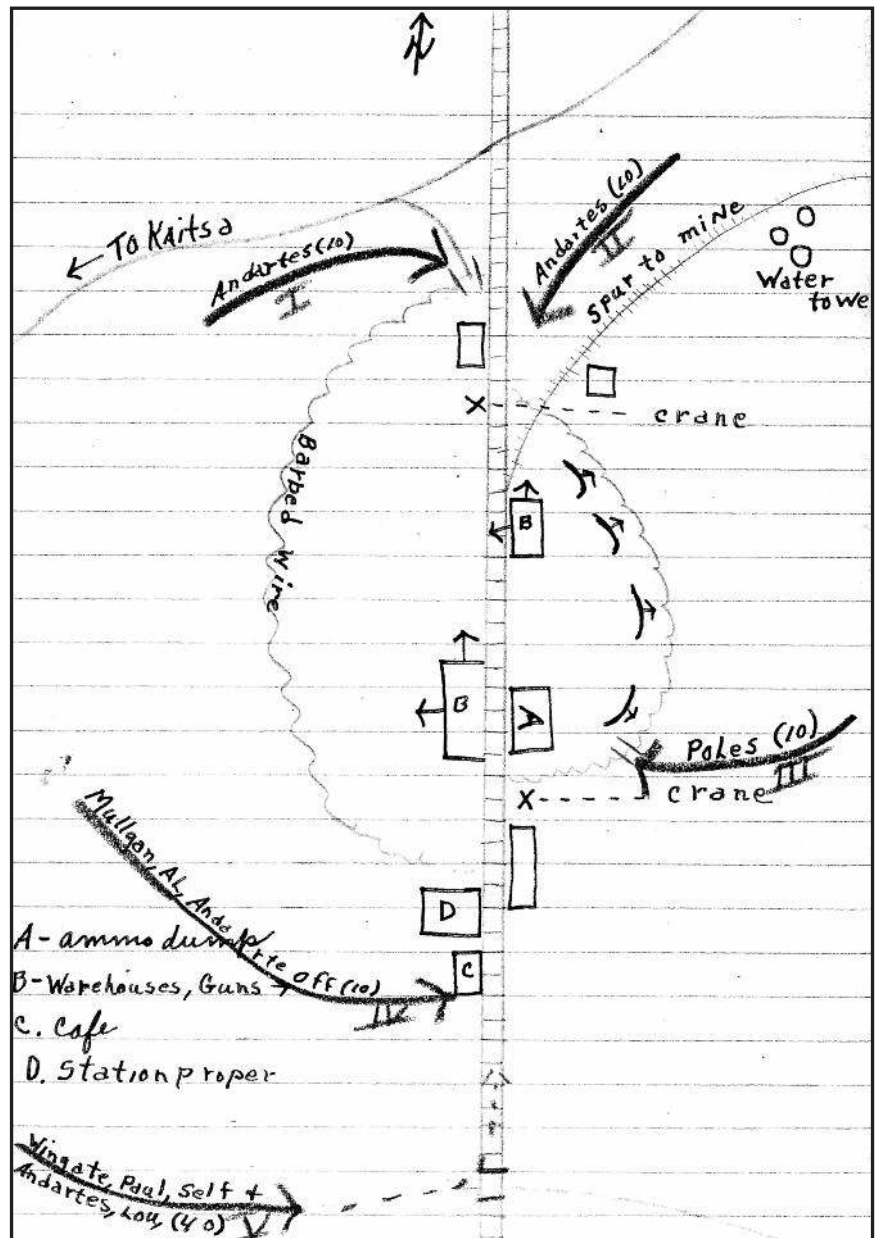 N
← To Kaitsa
Andartes (10)
I
Andartes (10)
II
Spur to mine
Water
towe
crane
Barbed wire
B
B
A
Poles (10)
III
X
crane
X
Mullgan, AL, Andarte Off (10)
IV
D
C
A- ammo dump
B- Warehouses, Guns →
C. Cafe
D. Station proper
Wingate, Paul, Self +
Andartes, Lou, (40)
V